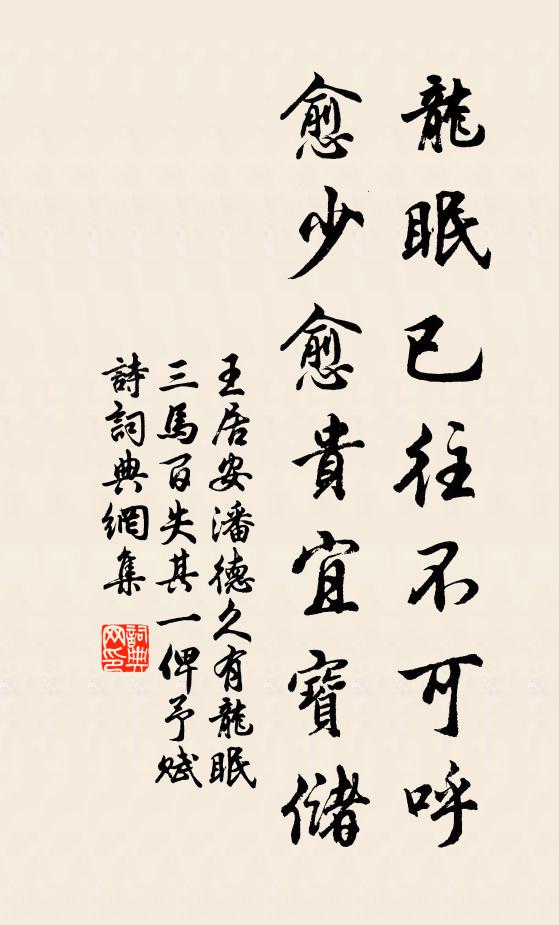 龍眠已往不可呼
愈少愈貴宜寶儲
王居安潘德久有龍眠
三馬百失其一俾予賦
詩詞典網集
詞典
网印